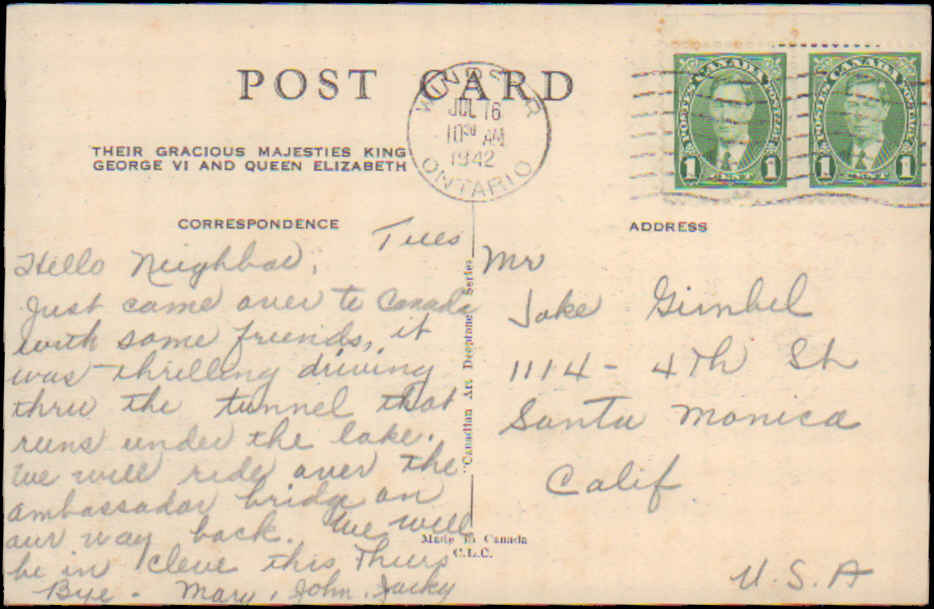 POST CARD
WINDSOR
JUL 16
10 30 AM
1942
ONTARIO
POSTES CANADA POSTAGE
1 CENT 1
POSTES CANADA POSTAGE
1 CENT 1
THEIR GRACIOUS MAJESTIES KING
GEORGE VI AND QUEEN ELIZABETH
CORRESPONDENCE
Tues
Hello Neighbor,
Just came over to Canada
with some friends, it
was thrilling driving
thru the tunnel that
runs under the lake.
We will ride over the
ambassador bridge on
our way back. We will
be in Cleve this Thurs
Bye - Mary, John, Jacky
"Canadian Art Deeptone Series"
Made in Canada
C.L.C.
ADDRESS
Mr
Jake Gimbel
1114 - 4Th St
Santa Monica
Calif
U.S.A